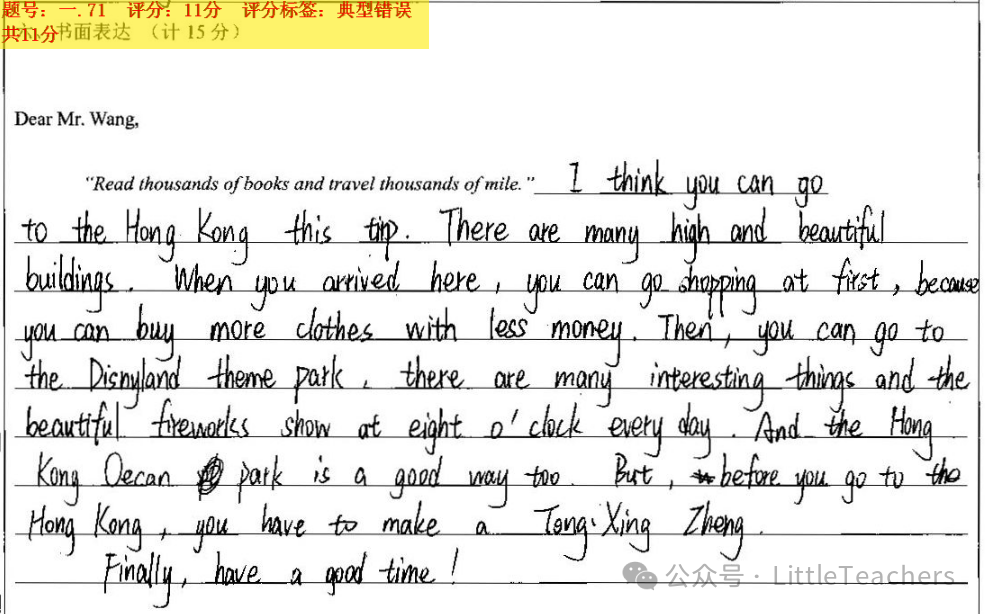 题号：一.71 评分：11分 评分标签：典型错误
共11分
六、书面表达 （计 15 分）
Dear Mr. Wang,
"Read thousands of books and travel thousands of mile." I think you can go
to the Hong Kong this tirp. There are many high and beautiful
buildings. When you arrived here, you can go shopping at first, because
you can buy more clothes with less money. Then, you can go to
the Disnyland theme park, there are many interesting things and the
beautiful fireworks show at eight o'clock every day. And the Hong
Kong Oecan park is a good way too. But, before you go to the
Hong Kong, you have to make a Tong·Xing Zheng.
Finally, have a good time!
公众号 · LittleTeachers